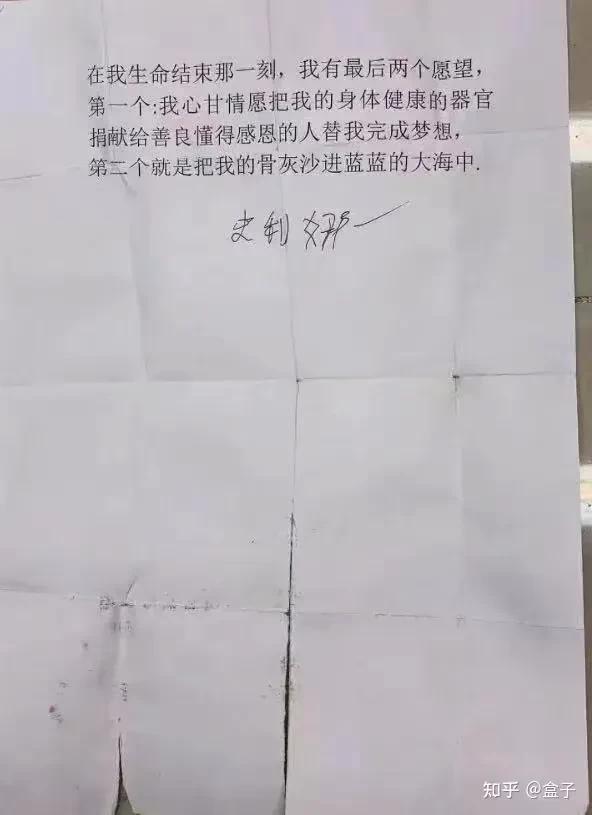 在我生命结束那一刻，我有最后两个愿望，
第一个:我心甘情愿把我的身体健康的器官
捐献给善良懂得感恩的人替我完成梦想，
第二个就是把我的骨灰沙进蓝蓝的大海中.
史利娜
知乎 @盒子